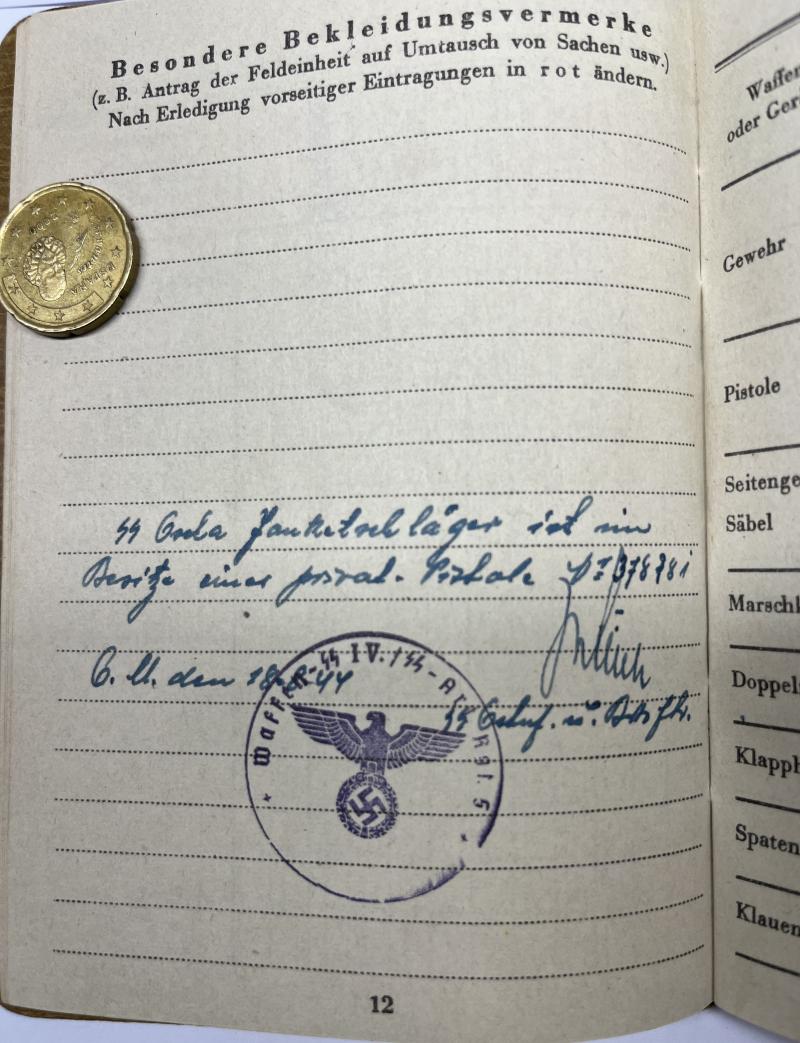 Besondere Bekleidungsvermerke
(z. B. Antrag der Feldeinheit auf Umtausch von Sachen usw.)
Nach Erledigung vorseitiger Eintragungen in rot ändern.
ESPAÑA
ϟϟ ist im
Besitze einer privat. Pistole
O. U. den 18.8.44
ϟϟ Ostuf. u. Battr. fhr.
Waffen-ϟϟ IV. / ϟϟ-A Rgt. 5
12
Waffen
oder Ger
Gewehr
Pistole
Seitenge
Säbel
Marschk
Doppel
Klapph
Spaten
Klauen